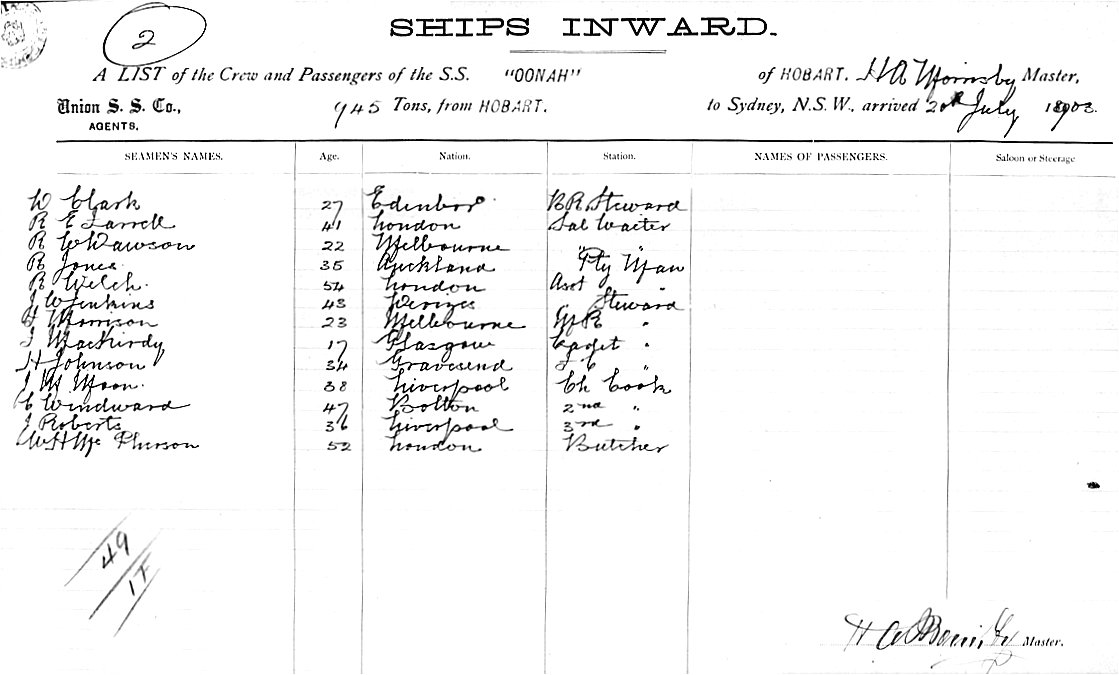 2
SHIPS INWARD.
A LIST of the Crew and Passengers of the S.S. "OONAH" of HOBART. H A Master,
Union S. S. Co., 945 Tons, from HOBART. to Sydney, N.S.W., arrived 20th July 1903.
AGENTS.
SEAMEN'S NAMES. Age. Nation. Station. NAMES OF PASSENGERS. Saloon or Steerage
W Clark 27 Edinboro B R Steward
R E Farrell 41 London Sal Waiter
R W Dawson 22 Melbourne " "
R Jones 35 Auckland Pty Man
R Welch 54 London Asst "
J W Jenkins 43 Devizes Steward
Morrison 23 Melbourne "
J MacKirdy 17 Glasgow "
H Johnson 34 Gravesend "
J M Moon 38 Liverpool Ch Cook
C Windward 47 Bolton 2nd "
J Roberts 36 Liverpool 3rd "
W H McPherson 52 London Butcher
49
17
H A Master.